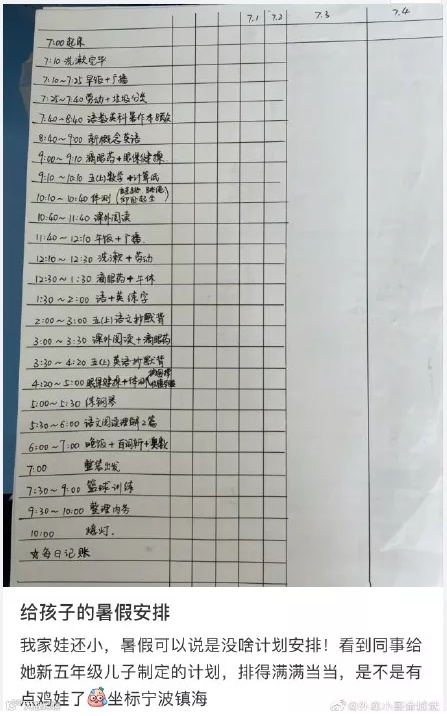 7.1 7.2 7.3 7.4
7:00 起床
7:10 洗漱完毕
7:10~7:25 早饭+广播
7:25~7:40 劳动+垃圾分类
7:40~8:40 语数英科暑作本8页
8:40~9:00 新概念英语
9:00~9:10 滴眼药+眼保健操
9:10~10:10 五(上)数学+计算纸
10:10~10:40 体测(仰卧起坐)
10:40~11:40 课外阅读
11:40~12:10 午饭+广播
12:10~12:30 洗漱+劳动
12:30~1:30 滴眼药+午休
1:30~2:00 语+英练字
2:00~3:00 五(上)语文抄默背
3:00~3:30 课外阅读+滴眼药
3:30~4:20 五(上)英语抄默背
4:20~5:00 眼保健操+体测
5:00~5:30 练钢琴
5:30~6:00 语文阅读理解2篇
6:00~7:00 晚饭+百词斩+奥数
7:00 整装出发
7:30~9:00 篮球训练
9:30~10:00 整理内务
10:00 熄灯.
☆每日记账
给孩子的暑假安排
我家娃还小，暑假可以说是没啥计划安排！看到同事给
她新五年级儿子制定的计划，排得满满当当，是不是有
点鸡娃了 坐标宁波镇海